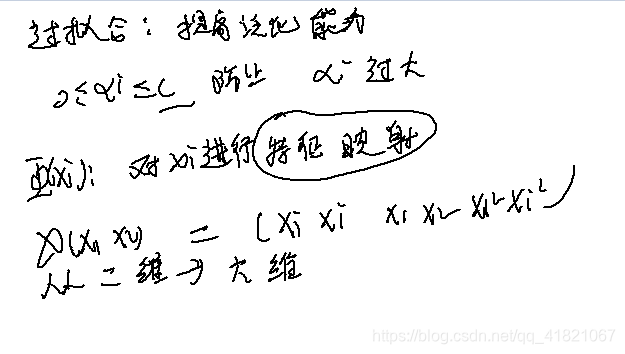 过拟合：提高泛化能力
0≤αi≤C 防止 αi 过大
Φ(xi)：对xi进行特征映射
(x1 x2) = (xi xi x1 x2 xi² xi²)
从二维→六维
https://blog.csdn.net/qq_41821067